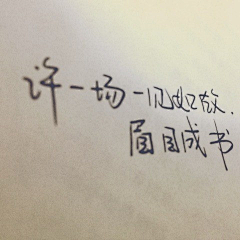 许一场一见如故.
眉目成书